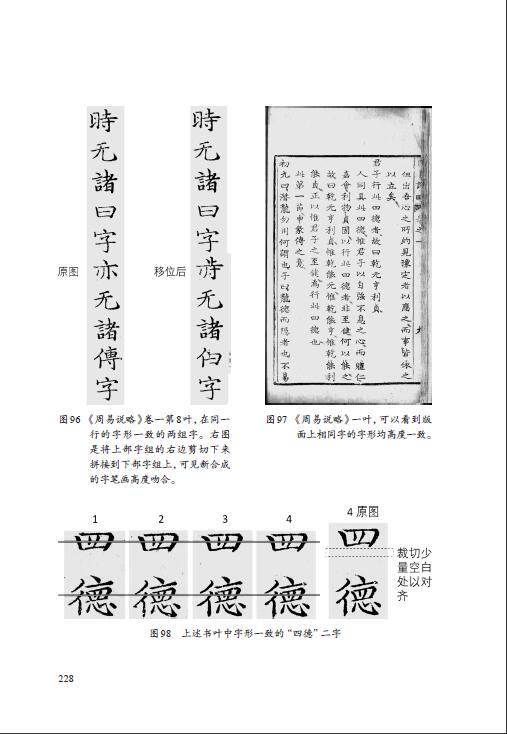 原图
時无諸曰字亦无諸傳字
移位后
時无諸曰字
无諸
字
但出吾心之所約見豫定者以應之而事皆依之
以立矣
君子行此四德者故曰乾元亨利貞
人同具此四德惟君子以自強不息之心而體仁
嘉會利物貞固以行此四德者非至健何以能之
故曰乾元亨利貞惟乾能元惟乾能亨惟乾能利
能貞正以惟君子之至健為行此四德也
此第一節申彖傳之意
初九曰潛龍勿用何謂也子曰龍德而隱者也不易
图96 《周易说略》卷一第8叶，在同一
行的字形一致的两组字。右图
是将上部字组的右边剪切下来
拼接到下部字组上，可见新合成
的字笔画高度吻合。
图97 《周易说略》一叶，可以看到版
面上相同字的字形均高度一致。
1 2 3 4 4 原图
四 四 四 四 四
德 德 德 德 德
裁切少
量空白
处以对
齐
图98 上述书叶中字形一致的“四德”二字
228